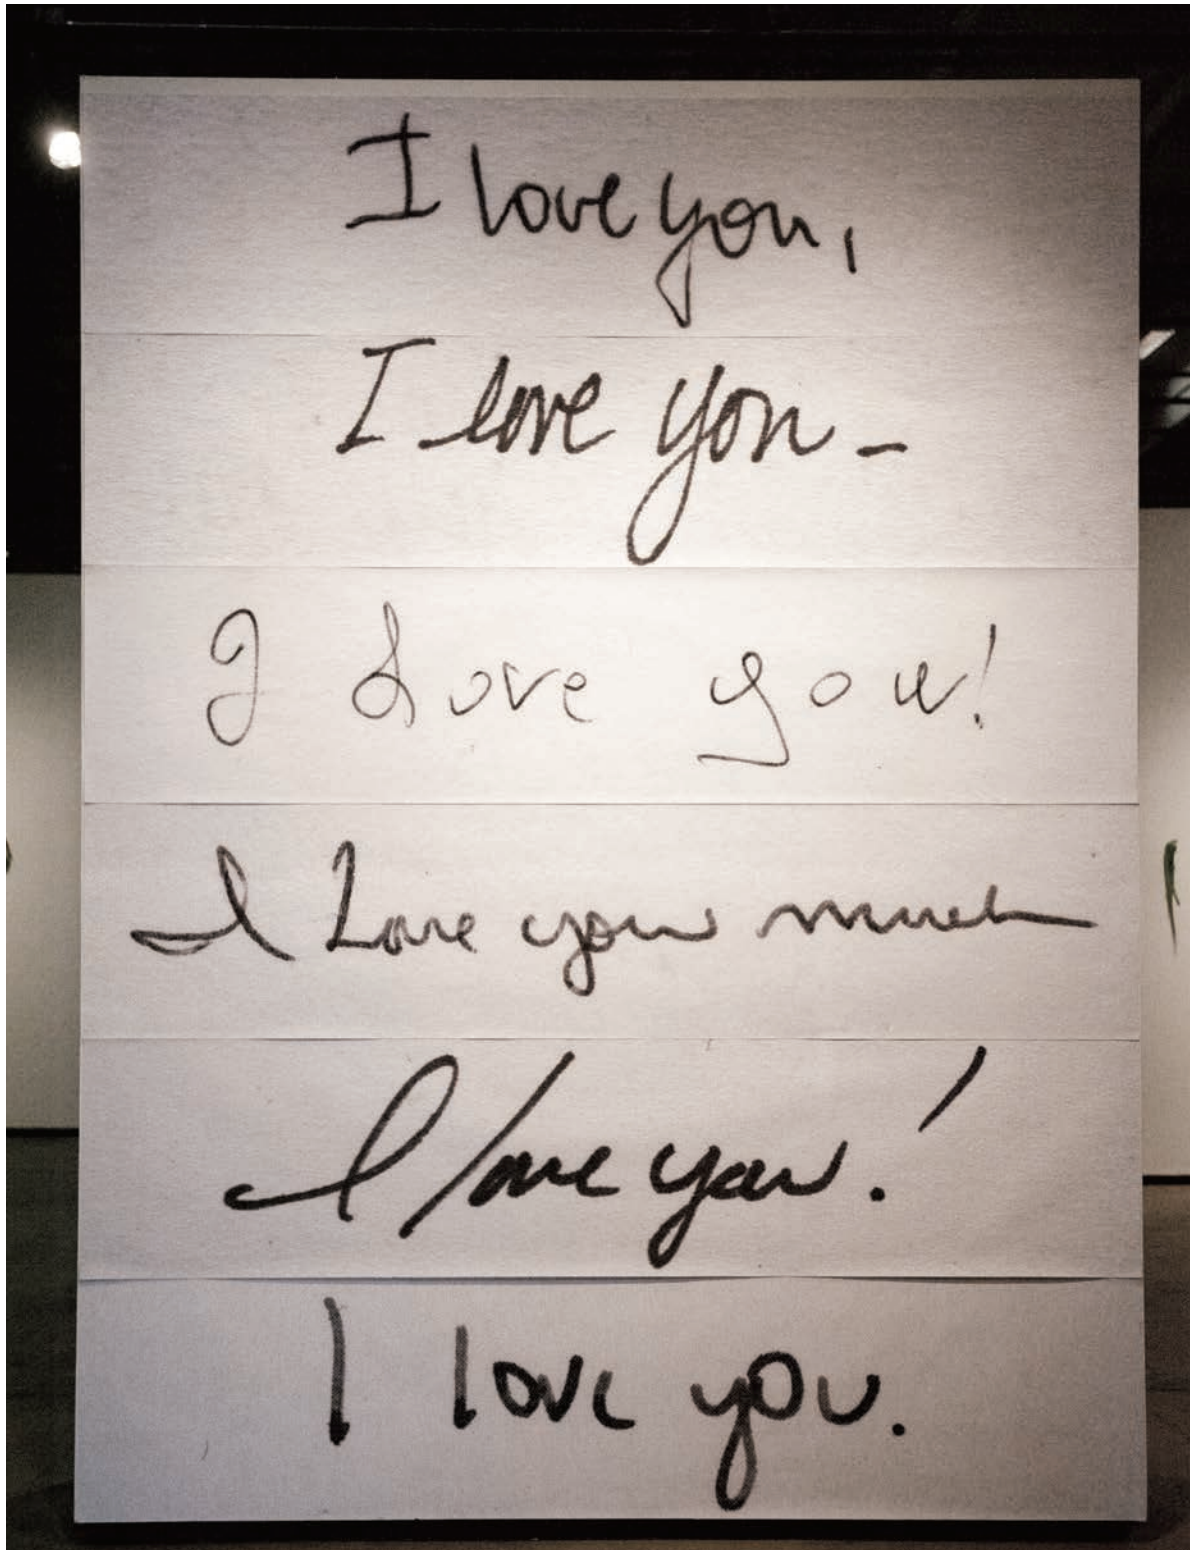 I love you,
I love you -
I Love you!
I Love you much
I love you!
I love you.